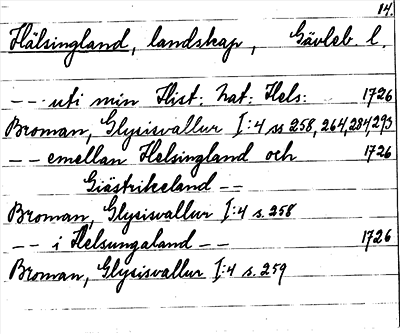 84.
Hälsingland, landskap, Gävleb. l.
-- uti min Hist: Nat: Hels: 1726
Broman, Glysisvallur I:4 ss 258, 264, 284, 293
-- emellan Helsingland och 1726
Giästrikeland --
Broman, Glysisvallur I:4 s. 258
-- i Helsungaland -- 1726
Broman, Glysisvallur I:4 s. 259